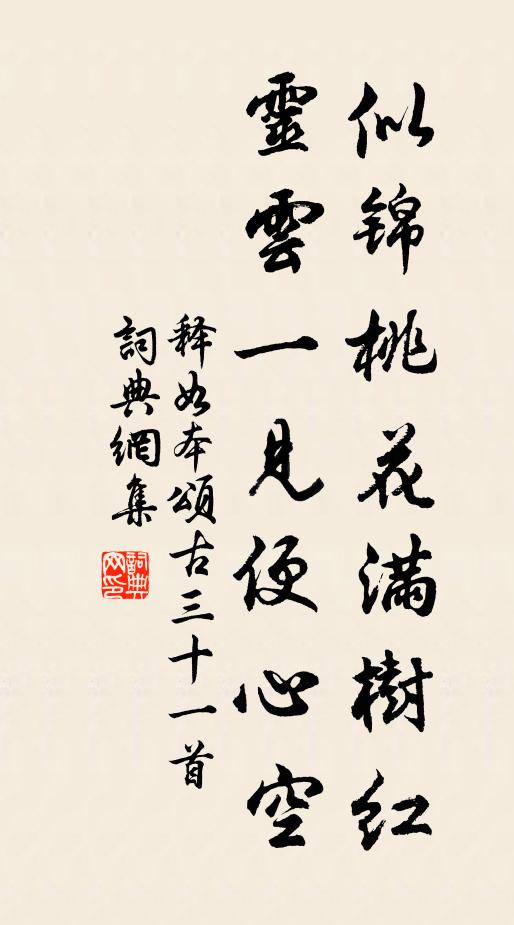 似锦桃花满樹红
靈雲一見便心空
释如本頌古三十一首
詞典網集
詞典网印